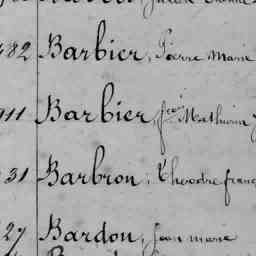 482 Barbier, Pierre Marie
911 Barbier, fçois Mathurin
31 Barbron, Theodre franç
27 Bardon, Jean marie